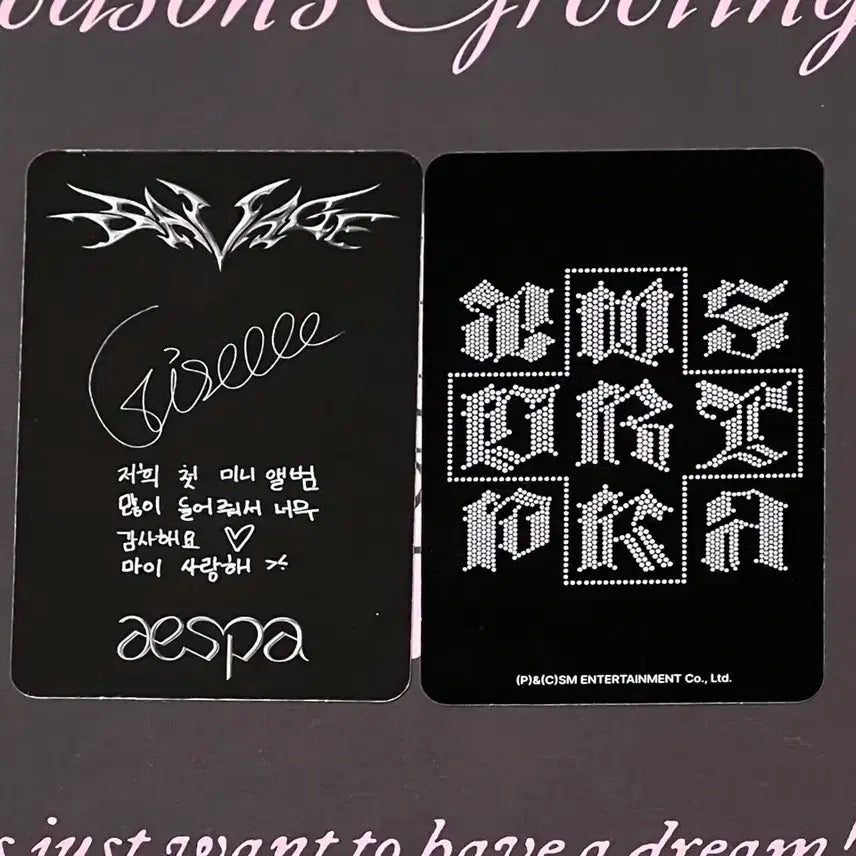 easons Greeting
SAVAGE
Giselle
저희 첫 미니 앨범
많이 들어줘서 너무
감사해요 ♡
마이 사랑해
aespa
æ W S
R I
P K A
(P)&(C)SM ENTERTAINMENT Co., Ltd.
s just want to have a dream!